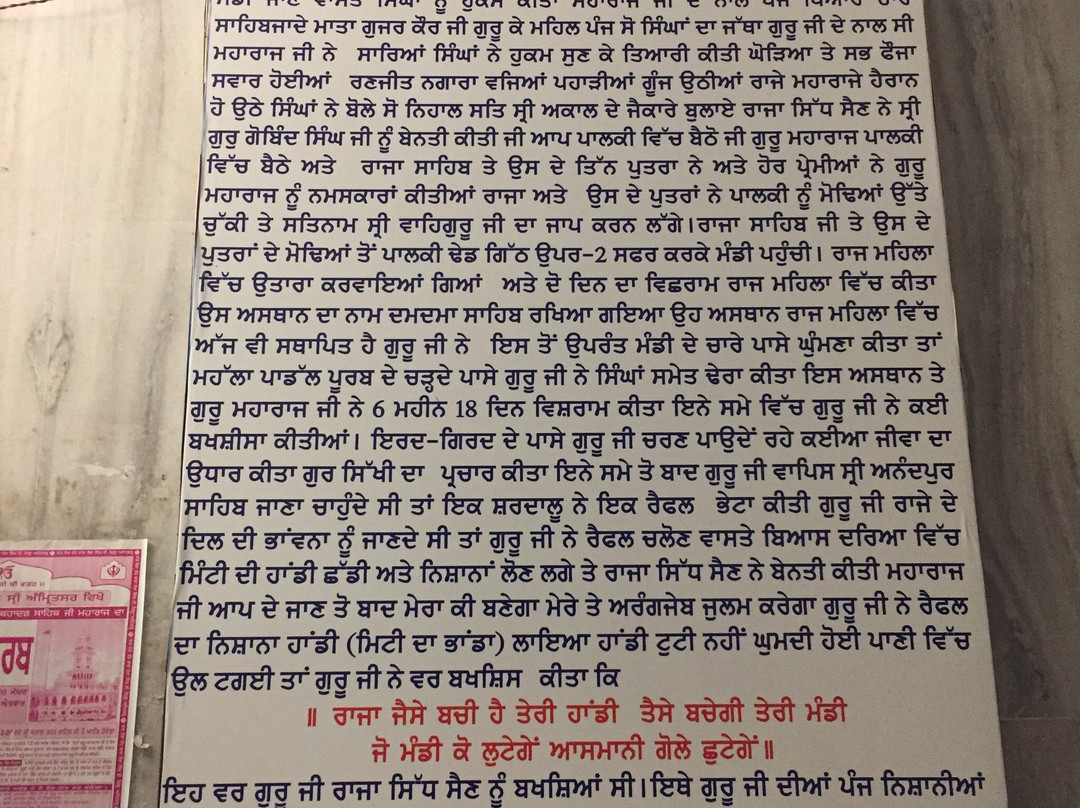 ਮੰਡੀ ਜਾਣ ਵਾਸਤੇ ਸਿੰਘਾਂ ਨੂੰ ਹੁਕਮ ਕੀਤਾ ਮਹਾਰਾਜ ਜੀ ਦੇ ਨਾਲ ਪੰਜ ਪਿਆਰੇ ਚਾਰ
ਸਾਹਿਬਜਾਦੇ ਮਾਤਾ ਗੁਜਰ ਕੌਰ ਜੀ ਗੁਰੂ ਕੇ ਮਹਿਲ ਪੰਜ ਸੋ ਸਿੰਘਾਂ ਦਾ ਜੱਥਾ ਗੁਰੂ ਜੀ ਦੇ ਨਾਲ ਸੀ
ਮਹਾਰਾਜ ਜੀ ਨੇ ਸਾਰਿਆਂ ਸਿੰਘਾਂ ਨੇ ਹੁਕਮ ਸੁਣ ਕੇ ਤਿਆਰੀ ਕੀਤੀ ਘੋੜਿਆ ਤੇ ਸਭ ਫੌਜਾ
ਸਵਾਰ ਹੋਈਆਂ ਰਣਜੀਤ ਨਗਾਰਾ ਵਜਿਆਂ ਪਹਾੜੀਆਂ ਗੂੰਜ ਉਠੀਆਂ ਰਾਜੇ ਮਹਾਰਾਜੇ ਹੈਰਾਨ
ਹੋ ਉਠੇ ਸਿੰਘਾਂ ਨੇ ਬੋਲੇ ਸੋ ਨਿਹਾਲ ਸਤਿ ਸ੍ਰੀ ਅਕਾਲ ਦੇ ਜੈਕਾਰੇ ਬੁਲਾਏ ਰਾਜਾ ਸਿੱਧ ਸੈਣ ਨੇ ਸ੍ਰੀ
ਗੁਰੁ ਗੋਬਿੰਦ ਸਿੰਘ ਜੀ ਨੂੰ ਬੇਨਤੀ ਕੀਤੀ ਜੀ ਆਪ ਪਾਲਕੀ ਵਿੱਚ ਬੈਠੋ ਜੀ ਗੁਰੂ ਮਹਾਰਾਜ ਪਾਲਕੀ
ਵਿੱਚ ਬੈਠੇ ਅਤੇ ਰਾਜਾ ਸਾਹਿਬ ਤੇ ਉਸ ਦੇ ਤਿੱਨ ਪੁਤਰਾ ਨੇ ਅਤੇ ਹੋਰ ਪ੍ਰੇਮੀਆਂ ਨੇ ਗੁਰੂ
ਮਹਾਰਾਜ ਨੂੰ ਨਮਸਕਾਰਾਂ ਕੀਤੀਆਂ ਰਾਜਾ ਅਤੇ ਉਸ ਦੇ ਪੁਤਰਾਂ ਨੇ ਪਾਲਕੀ ਨੂੰ ਮੋਢਿਆਂ ਉੱਤੇ
ਚੁੱਕੀ ਤੇ ਸਤਿਨਾਮ ਸ੍ਰੀ ਵਾਹਿਗੁਰੂ ਜੀ ਦਾ ਜਾਪ ਕਰਨ ਲੱਗੇ।ਰਾਜਾ ਸਾਹਿਬ ਜੀ ਤੇ ਉਸ ਦੇ
ਪੁਤਰਾਂ ਦੇ ਮੋਢਿਆਂ ਤੋਂ ਪਾਲਕੀ ਢੇਡ ਗਿੱਠ ਉਪਰ-2 ਸਫਰ ਕਰਕੇ ਮੰਡੀ ਪਹੁੰਚੀ। ਰਾਜ ਮਹਿਲਾ
ਵਿੱਚ ਉਤਾਰਾ ਕਰਵਾਇਆਂ ਗਿਆਂ ਅਤੇ ਦੋ ਦਿਨ ਦਾ ਵਿਛਰਾਮ ਰਾਜ ਮਹਿਲਾ ਵਿੱਚ ਕੀਤਾ
ਉਸ ਅਸਥਾਨ ਦਾ ਨਾਮ ਦਮਦਮਾ ਸਾਹਿਬ ਰਖਿਆ ਗਇਆ ਉਹ ਅਸਥਾਨ ਰਾਜ ਮਹਿਲਾ ਵਿੱਚ
ਅੱਜ ਵੀ ਸਥਾਪਿਤ ਹੈ ਗੁਰੂ ਜੀ ਨੇ ਇਸ ਤੋਂ ਉਪਰੰਤ ਮੰਡੀ ਦੇ ਚਾਰੇ ਪਾਸੇ ਘੁੰਮਣਾ ਕੀਤਾ ਤਾਂ
ਮਹੱਲਾ ਪਾਡੱਲ ਪੂਰਬ ਦੇ ਚੜ੍ਹਦੇ ਪਾਸੇ ਗੁਰੂ ਜੀ ਨੇ ਸਿੰਘਾਂ ਸਮੇਤ ਢੇਰਾ ਕੀਤਾ ਇਸ ਅਸਥਾਨ ਤੇ
ਗੁਰੂ ਮਹਾਰਾਜ ਜੀ ਨੇ 6 ਮਹੀਨ 18 ਦਿਨ ਵਿਸ਼ਰਾਮ ਕੀਤਾ ਇਨੇ ਸਮੇ ਵਿੱਚ ਗੁਰੂ ਜੀ ਨੇ ਕਈ
ਬਖਸ਼ੀਸਾ ਕੀਤੀਆਂ। ਇਰਦ-ਗਿਰਦ ਦੇ ਪਾਸੇ ਗੁਰੂ ਜੀ ਚਰਣ ਪਾਉਦੇਂ ਰਹੇ ਕਈਆ ਜੀਵਾ ਦਾ
ਉਧਾਰ ਕੀਤਾ ਗੁਰ ਸਿੱਖੀ ਦਾ ਪ੍ਰਚਾਰ ਕੀਤਾ ਇਨੇ ਸਮੇ ਤੋ ਬਾਦ ਗੁਰੂ ਜੀ ਵਾਪਿਸ ਸ੍ਰੀ ਅਨੰਦਪੁਰ
ਸਾਹਿਬ ਜਾਣਾ ਚਾਹੁੰਦੇ ਸੀ ਤਾਂ ਇਕ ਸ਼ਰਦਾਲੂ ਨੇ ਇਕ ਰੈਫਲ ਭੇਟਾ ਕੀਤੀ ਗੁਰੂ ਜੀ ਰਾਜੇ ਦੇ
ਦਿਲ ਦੀ ਭਾਂਵਨਾ ਨੂੰ ਜਾਣਦੇ ਸੀ ਤਾਂ ਗੁਰੂ ਜੀ ਨੇ ਰੈਫਲ ਚਲੋਣ ਵਾਸਤੇ ਬਿਆਸ ਦਰਿਆ ਵਿੱਚ
ਮਿੰਟੀ ਦੀ ਹਾਂਡੀ ਛੱਡੀ ਅਤੇ ਨਿਸ਼ਾਨਾਂ ਲੋਣ ਲਗੇ ਤੇ ਰਾਜਾ ਸਿੱਧ ਸੈਣ ਨੇ ਬੇਨਤੀ ਕੀਤੀ ਮਹਾਰਾਜ
ਜੀ ਆਪ ਦੇ ਜਾਣ ਤੋ ਬਾਦ ਮੇਰਾ ਕੀ ਬਣੇਗਾ ਮੇਰੇ ਤੇ ਅਰੰਗਜੇਬ ਜੁਲਮ ਕਰੇਗਾ ਗੁਰੂ ਜੀ ਨੇ ਰੈਫਲ
ਦਾ ਨਿਸ਼ਾਨਾ ਹਾਂਡੀ (ਮਿਟੀ ਦਾ ਭਾਂਡਾ) ਲਾਇਆ ਹਾਂਡੀ ਟੁਟੀ ਨਹੀਂ ਘੁਮਦੀ ਹੋਈ ਪਾਣੀ ਵਿੱਚ
ਉਲ ਟਗਈ ਤਾਂ ਗੁਰੂ ਜੀ ਨੇ ਵਰ ਬਖਸ਼ਿਸ ਕੀਤਾ ਕਿ
॥ ਰਾਜਾ ਜੈਸੇ ਬਚੀ ਹੈ ਤੇਰੀ ਹਾਂਡੀ ਤੈਸੇ ਬਚੇਗੀ ਤੇਰੀ ਮੰਡੀ
ਜੋ ਮੰਡੀ ਕੋ ਲੁਟੇਗੇਂ ਆਸਮਾਨੀ ਗੋਲੇ ਛੁਟੇਗੇਂ॥
ਇਹ ਵਰ ਗੁਰੂ ਜੀ ਰਾਜਾ ਸਿੱਧ ਸੈਣ ਨੂੰ ਬਖਸ਼ਿਆਂ ਸੀ।ਇਥੇ ਗੁਰੂ ਜੀ ਦੀਆਂ ਪੰਜ ਨਿਸ਼ਾਨੀਆਂ
ਸ੍ਰੀ ਅੰਮ੍ਰਿਤਸਰ ਵਿਖੇ
ਬਹਾਦਰ ਸਾਹਿਬ ਜੀ ਮਹਾਰਾਜ ਦਾ